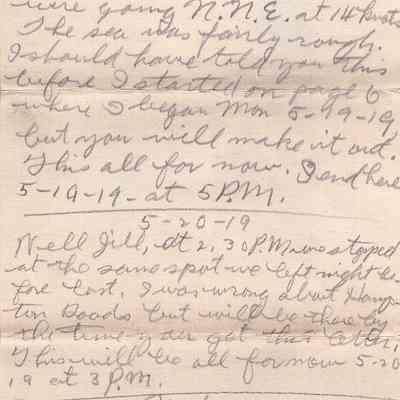 were going N.N.E. at 14 knots
The sea was fairly rough.
I should have told you this
before I started on page 6
where I began Mon 5-19-19,
but you will make it out.
This all for now. I end here
5-19-19- at 5 P.M.
5-20-19
Well Jill, at 2.30 P.M. we stopped
at the same spot we left night be-
fore last. I was wrong about Hamp-
ton Roads but will be there by
the time you get this letter.
This will be all for now 5-20
,19 at 3 P.M.